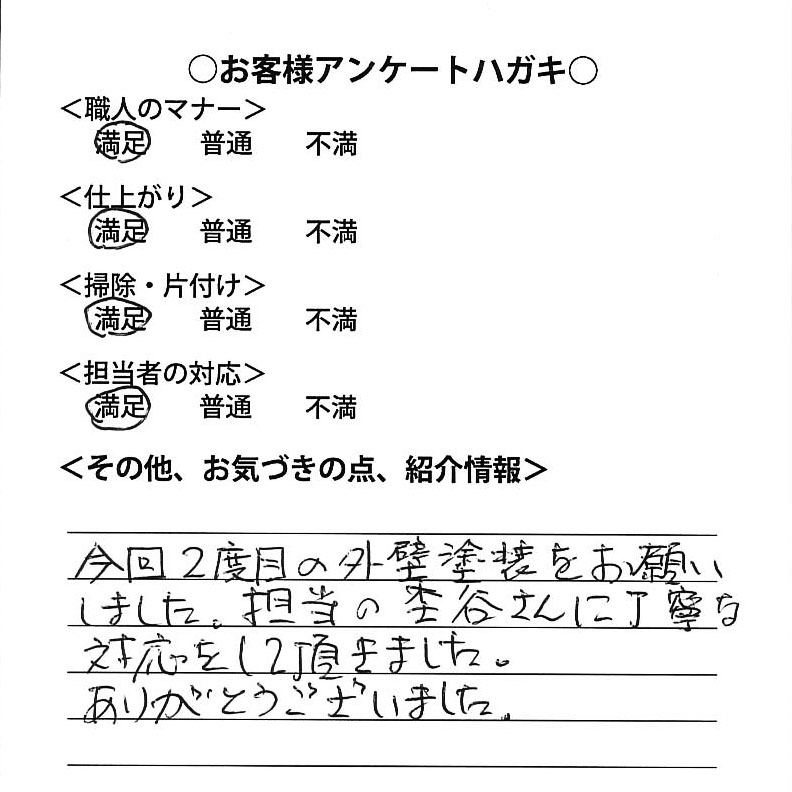 ○お客様アンケートハガキ○
<職人のマナー>
満足 普通 不満
<仕上がり>
満足 普通 不満
<掃除・片付け>
満足 普通 不満
<担当者の対応>
満足 普通 不満
<その他、お気づきの点、紹介情報>
今回2度目の外壁塗装をお願い
しました。担当の杢谷さんに丁寧な
対応をして頂きました。
ありがとうございました。